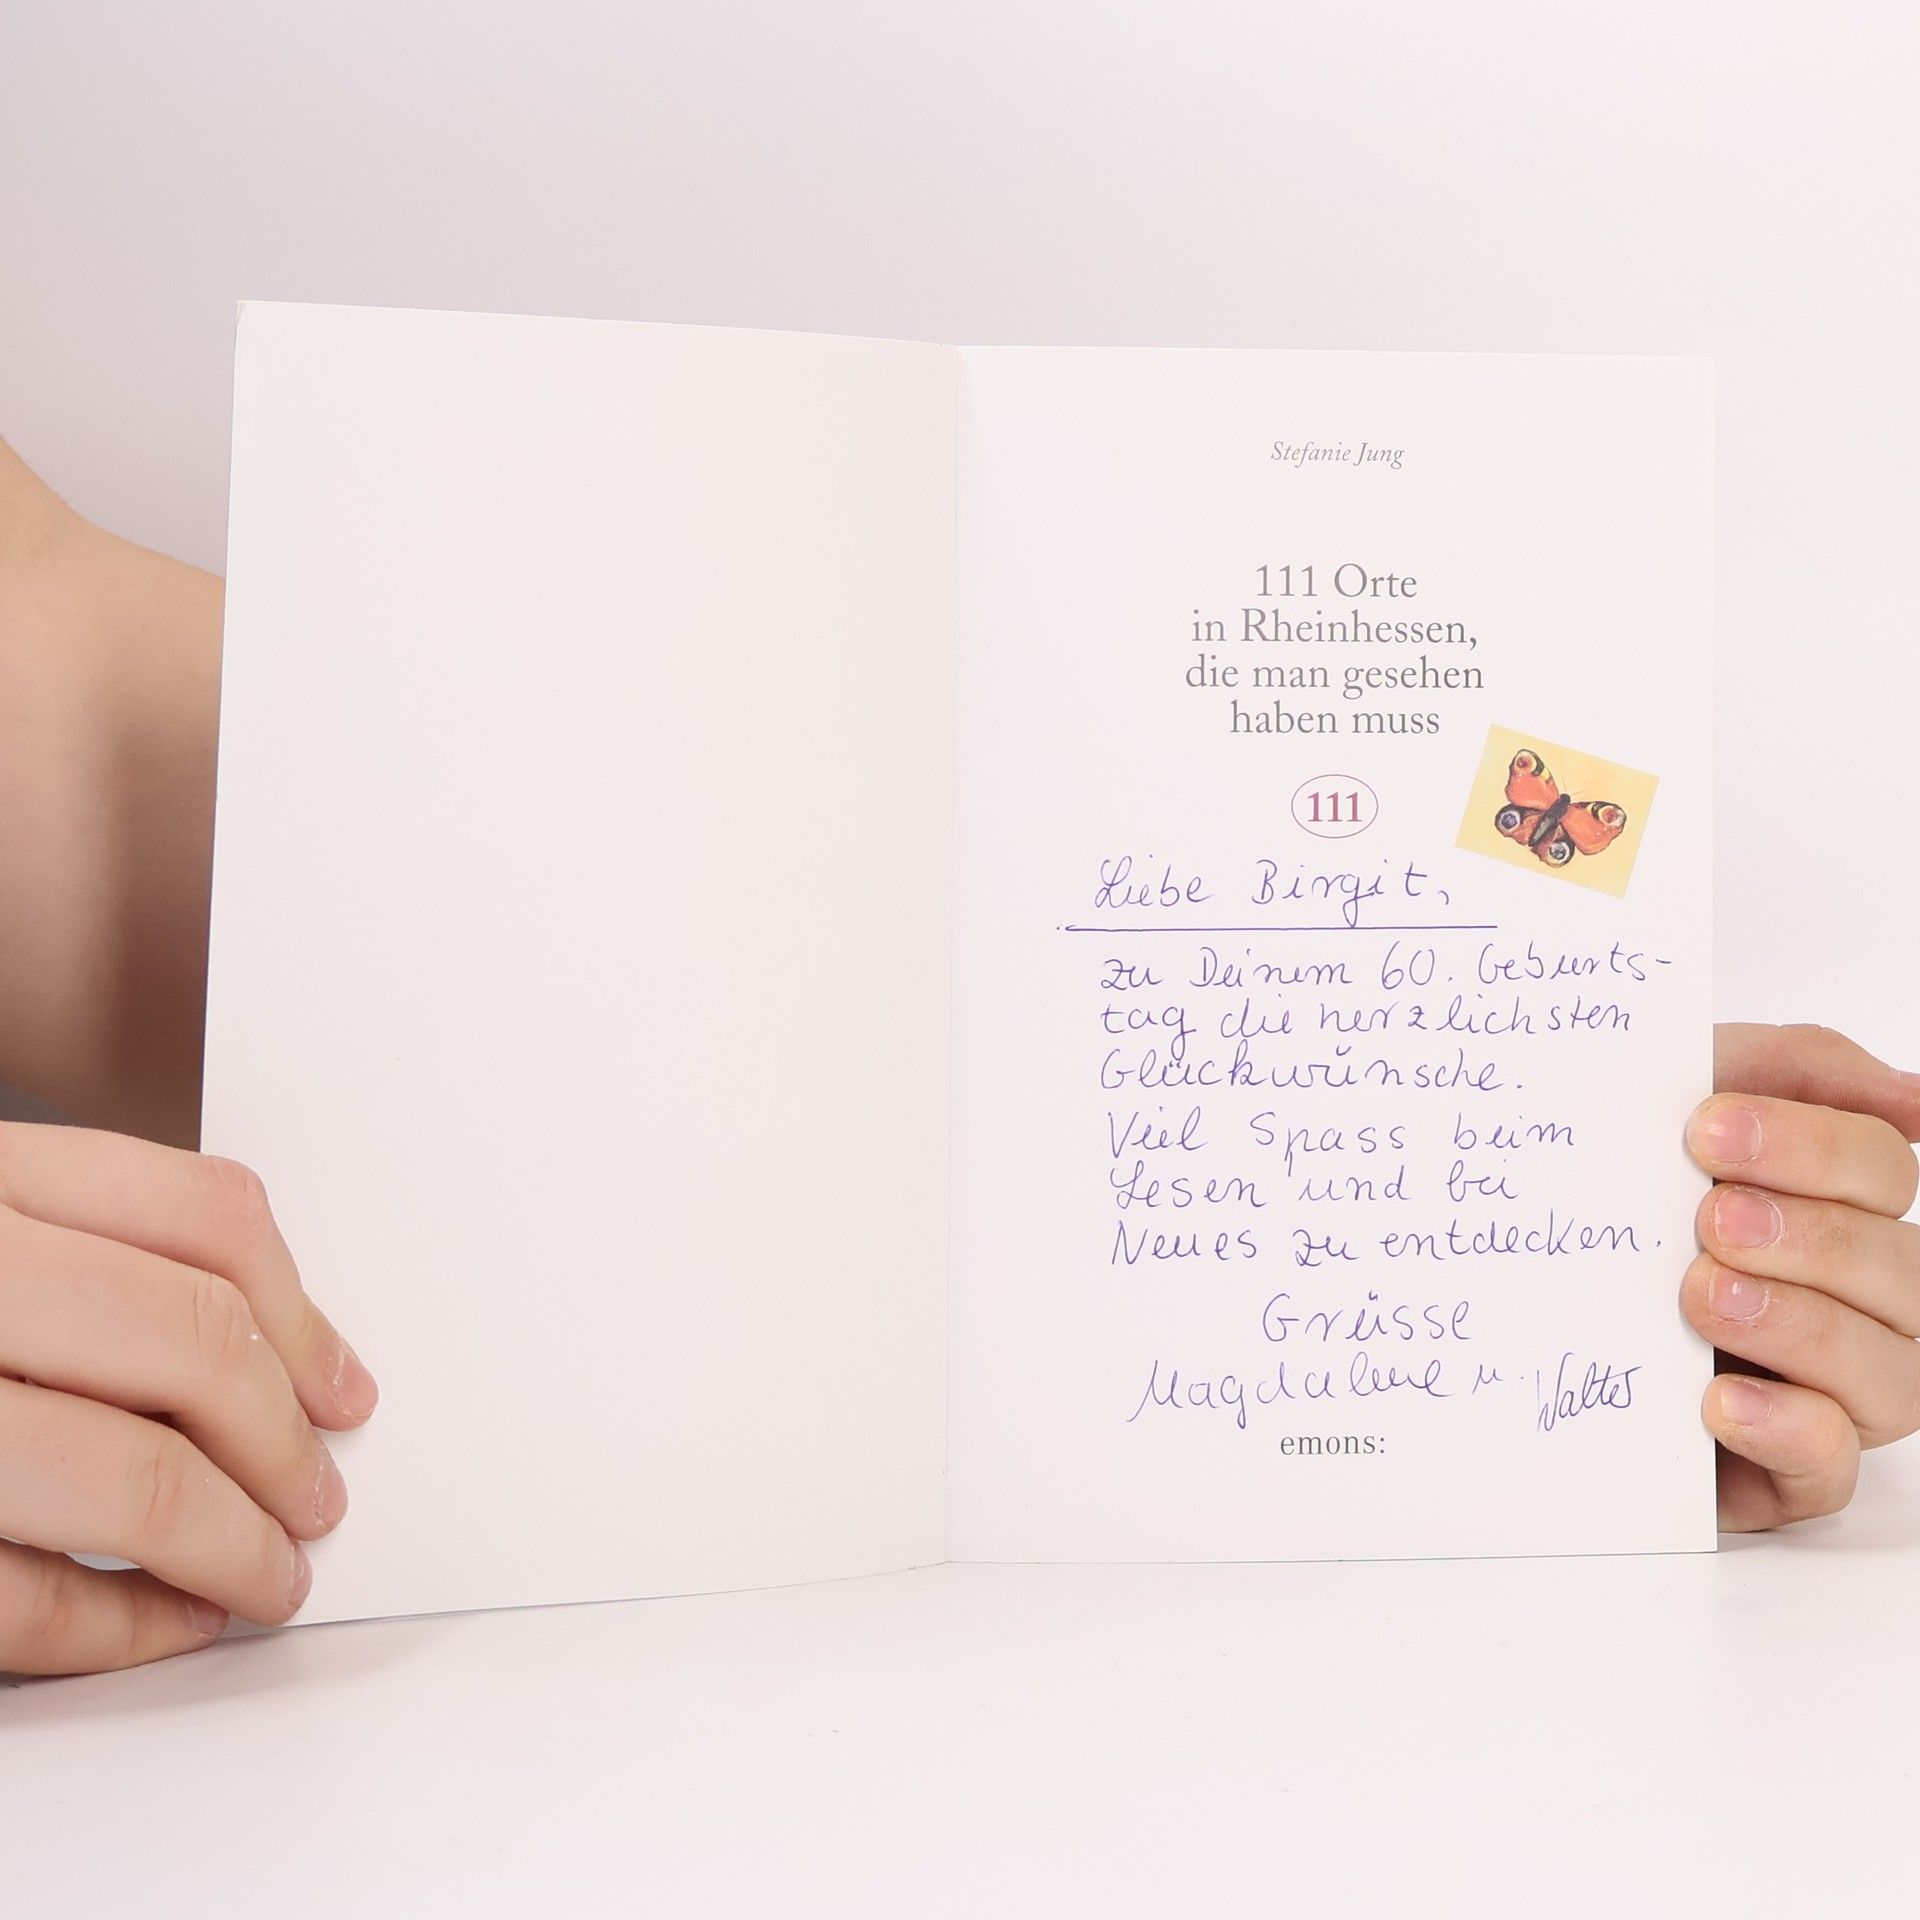 Stefanie Jung
111 Orte
in Rheinhessen,
die man gesehen
haben muss
111
Liebe Birgit,
zu Deinem 60. Geburts-
tag die herzlichsten
Glückwünsche.
Viel Spass beim
Lesen und bei
Neues zu entdecken.
Grüsse
Magdalene u. Walter
emons: